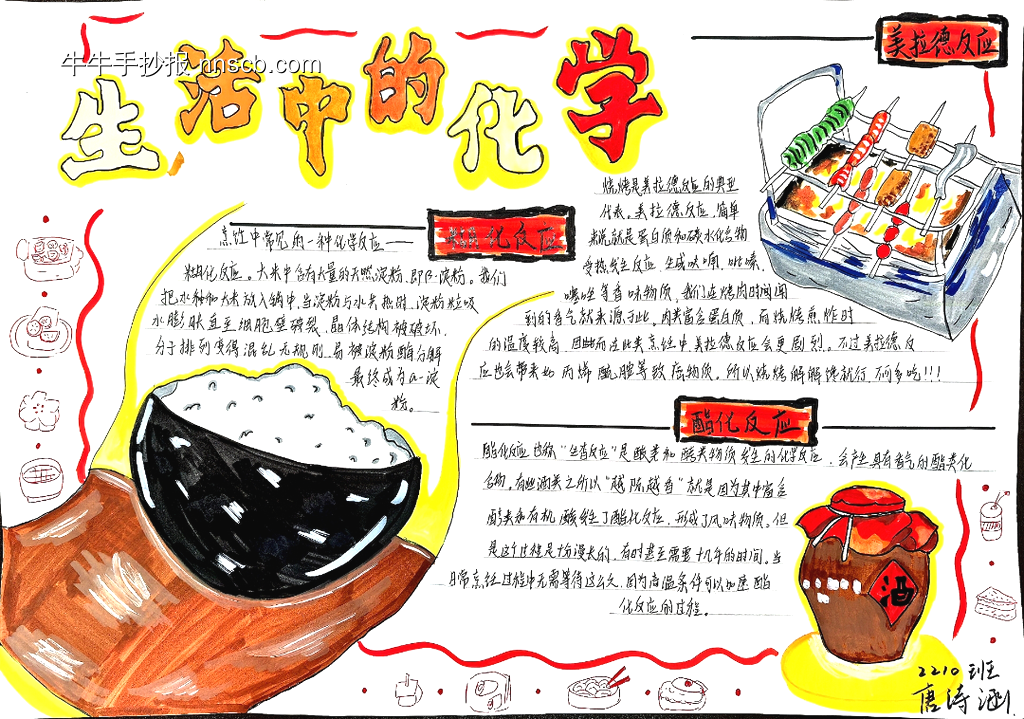 牛牛手抄报 nnscb.com
生活中的化学
美拉德反应
烧烤是美拉德反应的典型
代表。美拉德反应,简单
来说就是蛋白质和碳水化合物
受热发生反应,生成呋喃、吡嗪、
噻唑等香味物质,我们在烤肉时闻
到的香气就来源于此。肉类富含蛋白质,而烧烤煎炸时
的温度较高,因此而在此类烹饪中,美拉德反应会更剧烈。不过美拉德反
应也会带来如丙烯酰胺等致癌物质,所以烧烤解解馋就行,不可多吃!!!
糊化反应
烹饪中常见的一种化学反应——
糊化反应。大米中含有大量的天然淀粉,即β-淀粉。我们
把水和大米放入锅中,当淀粉与水共热时,淀粉粒吸
水膨胀直至细胞壁破裂,晶体结构被破坏,
分子排列变得混乱无规则,易被淀粉酶分解
最终成为α-淀
粉。
酯化反应
酯化反应也称“生香反应”是酸类和醇类物质发生的化学反应,会产生具有香气的酯类化
合物。有些酒类之所以“越陈越香”就是因为其中富含
醇类和有机酸发生了酯化反应,形成了风味物质。但
是这个过程是十分漫长的,有时甚至需要几年的时间。当
日常烹饪过程中无需等待这么久,因为高温条件可以加速酯
化反应的过程。
酒
2210班
唐诗涵